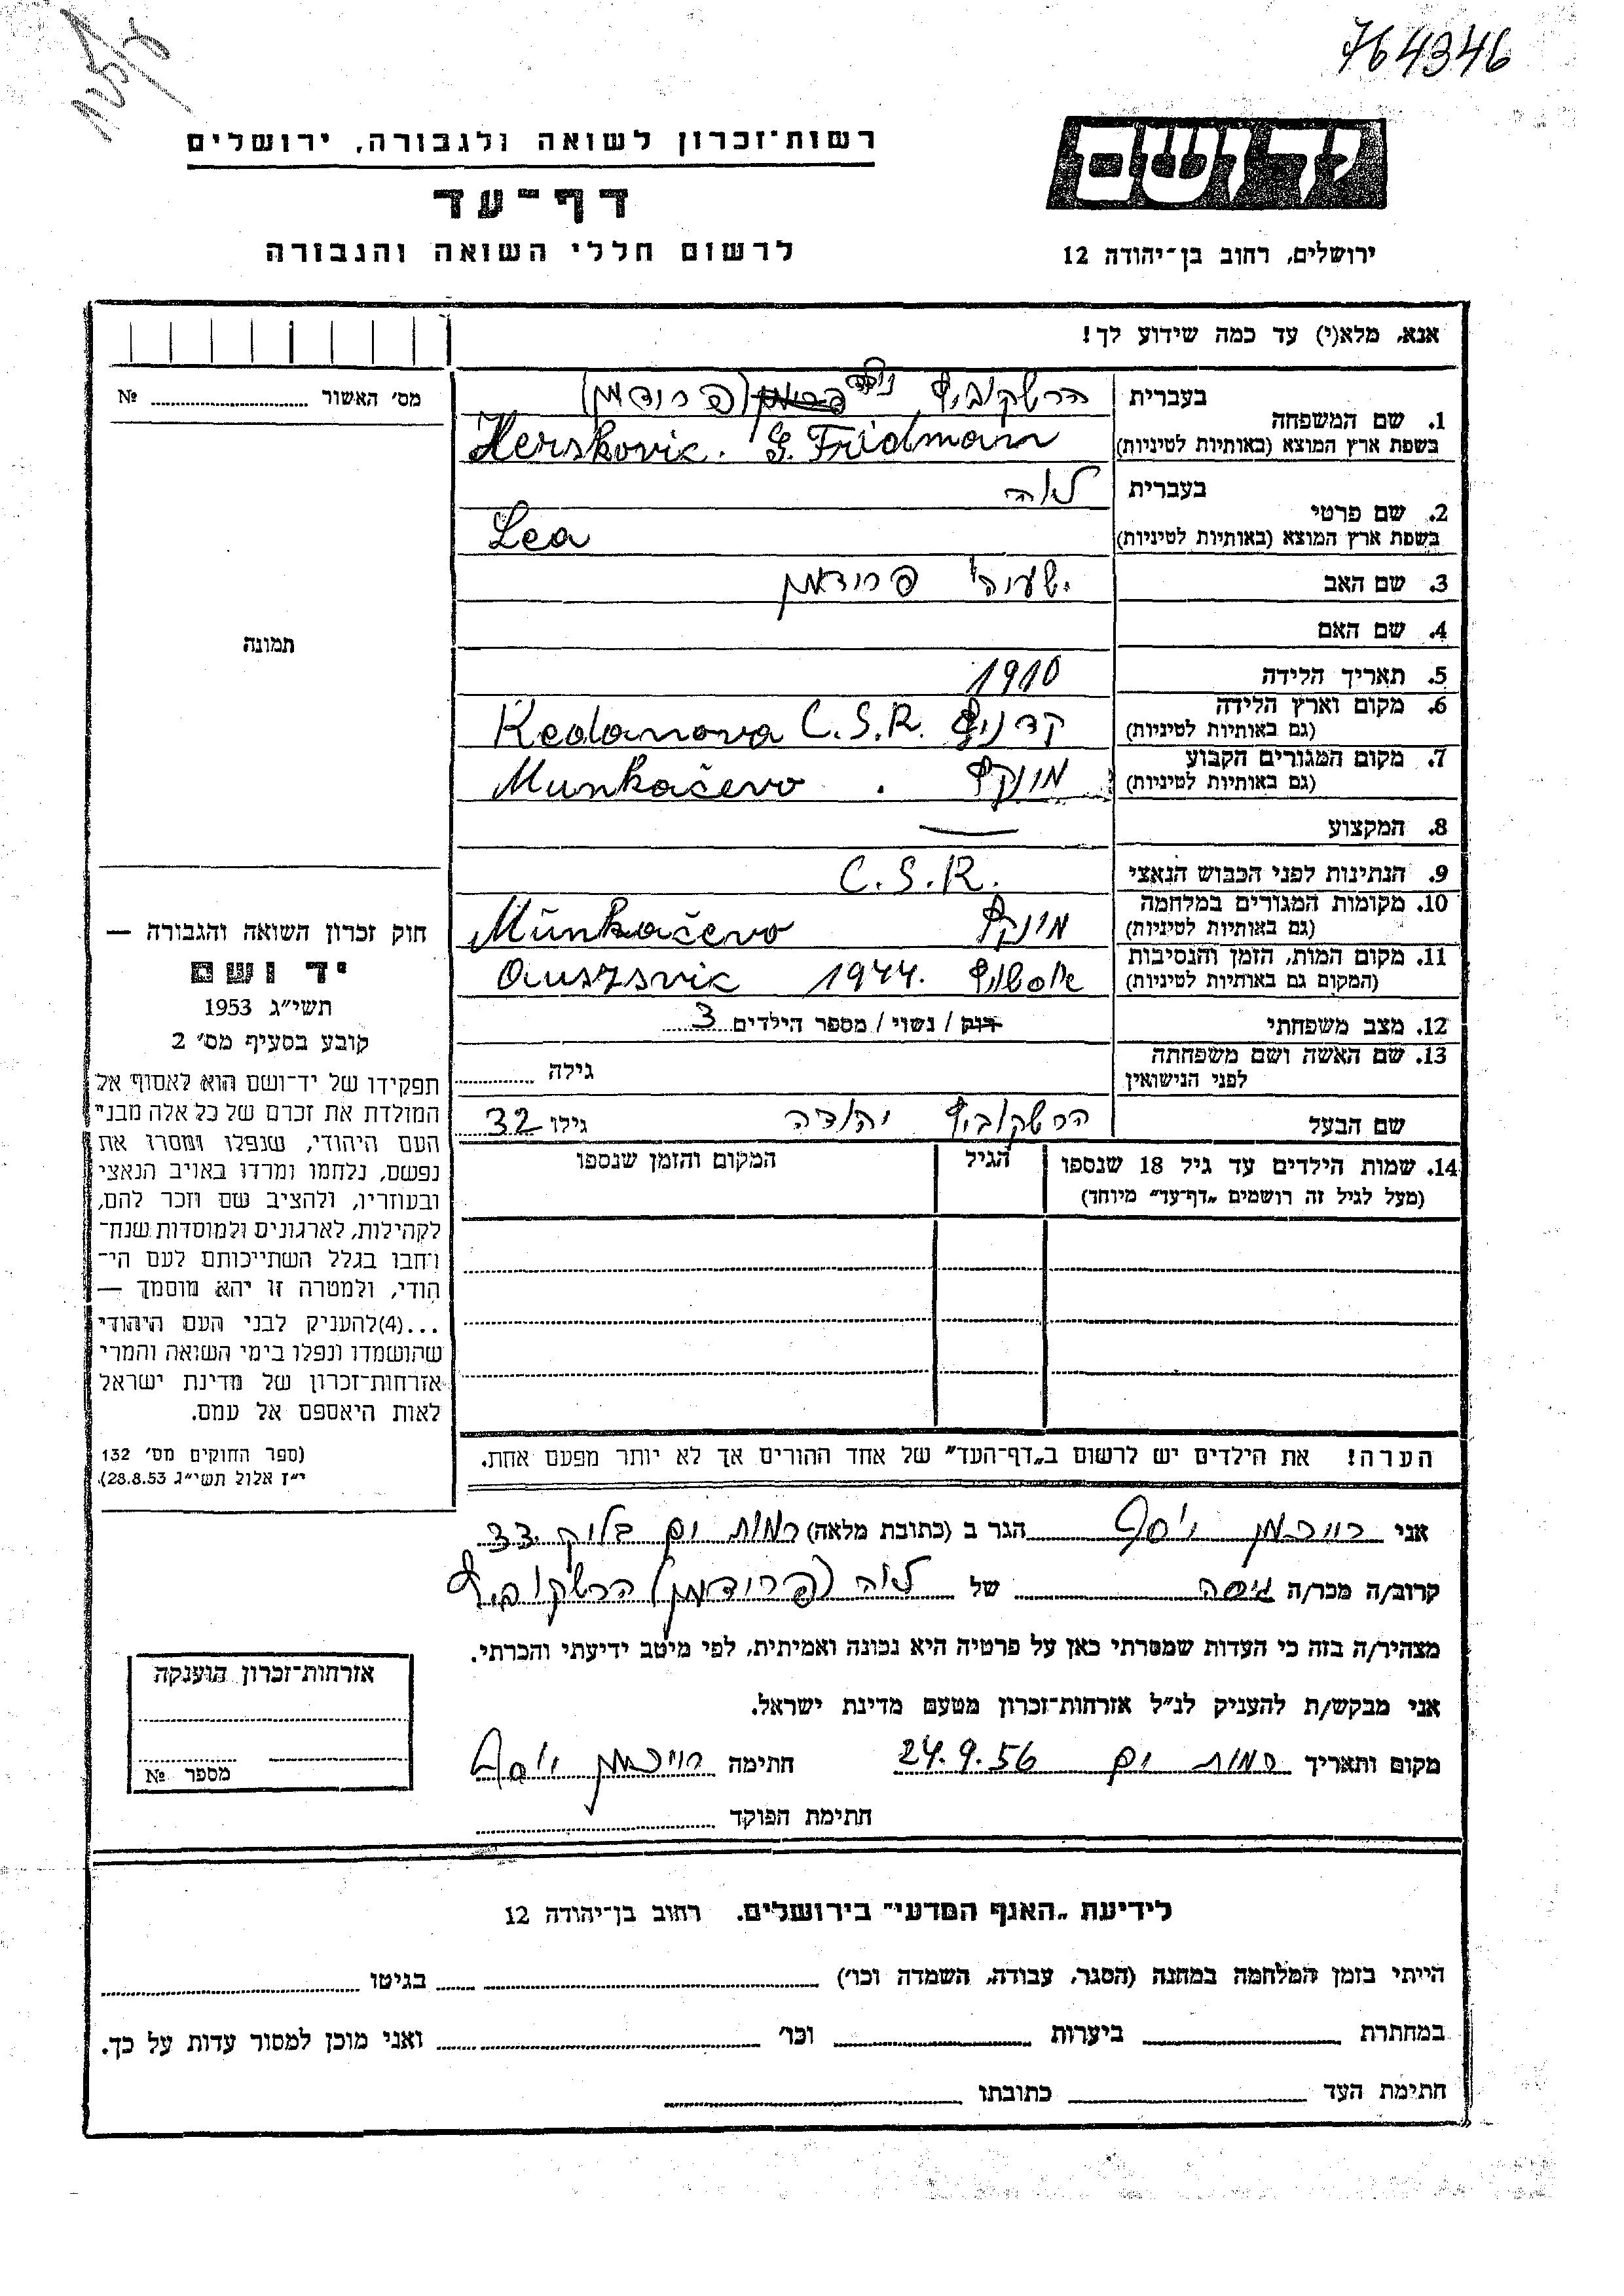 764346
רשות־זכרון לשואה ולגבורה, ירושלים
ידושם
דף־עד
לרשום חללי השואה והגבורה
ירושלים, רחוב בן־יהודה 12
אנא, מלא(י) עד כמה שידוע לך!
מס׳ האשור № 
תמונה
1. שם המשפחה
בעברית הרשקוביץ (פרידמן)
בשפת ארץ המוצא (באותיות לטיניות) Herskovic. G. Fridmann
2. שם פרטי
בעברית לאה
בשפת ארץ המוצא (באותיות לטיניות) Lea
3. שם האב ישעיה פרידמן
4. שם האם
5. תאריך הלידה 1910
6. מקום וארץ הלידה
(גם באותיות לטיניות) C.S.R.
7. מקום המגורים הקבוע
(גם באותיות לטיניות) מונקץ Munkačevo
8. המקצוע —
9. הנתינות לפני הכבוש הנאצי C.S.R.
10. מקומות המגורים במלחמה
(גם באותיות לטיניות) מונקץ Munkačevo
11. מקום המות, הזמן והנסיבות
(המקום גם באותיות לטיניות) 1944. Auszsvic
12. מצב משפחתי רוק / נשוי / מספר הילדים 3
13. שם האשה ושם משפחתה
לפני הנישואין גילה
שם הבעל הרשקוביץ יהודה גילו 32
14. שמות הילדים עד גיל 18 שנספו הגיל המקום והזמן שנספו
(מעל לגיל זה רושמים „דף־עד״ מיוחד)
הערה! את הילדים יש לרשום ב„דף־העד״ של אחד ההורים אך לא יותר מפעם אחת.
חוק זכרון השואה והגבורה —
יד ושם
תשי״ג 1953
קובע בסעיף מס׳ 2
תפקידו של יד־ושם הוא לאסוף אל
המולדת את זכרם של כל אלה מבני
העם היהודי, שנפלו ומסרו את
נפשם, נלחמו ומרדו באויב הנאצי
ובעוזריו, ולהציב שם וזכר להם,
לקהילות, לארגונים ולמוסדות שנח־
רבו בגלל השתייכותם לעם הי־
הודי, ולמטרה זו יהא מוסמך —
...(4)להעניק לבני העם היהודי
שהושמדו ונפלו בימי השואה והמרי
אזרחות־זכרון של מדינת ישראל
לאות היאספם אל עמם.
(ספר החוקים מס׳ 132
י״ז אלול תשי״ג 28.8.53).
אני יוסף הגר ב (כתובת מלאה) רמות ים בלוק 33
קרוב/ה מכר/ה גיסה של לאה (פרידמן) הרשקוביץ
מצהיר/ה בזה כי העדות שמסרתי כאן על פרטיה היא נכונה ואמיתית, לפי מיטב ידיעתי והכרתי.
אני מבקש/ת להעניק לנ״ל אזרחות־זכרון מטעם מדינת ישראל.
מקום ותאריך רמות ים 24.9.56 חתימה יוסף
חתימת הפוקד
אזרחות־זכרון הוענקה
מספר №
לידיעת „האגף המדעי״ בירושלים. רחוב בן־יהודה 12
הייתי בזמן המלחמה במחנה (הסגר, עבודה, השמדה וכו׳) בגיטו
במחתרת ביערות וכו׳ ואני מוכן למסור עדות על כך.
חתימת העד כתובתו